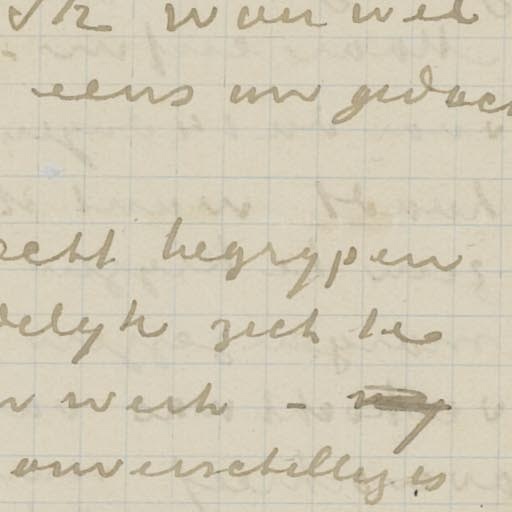 Ik wou wel
eens uw gedac
echt begrypen
delyk zich te
werk -
onverschillig is